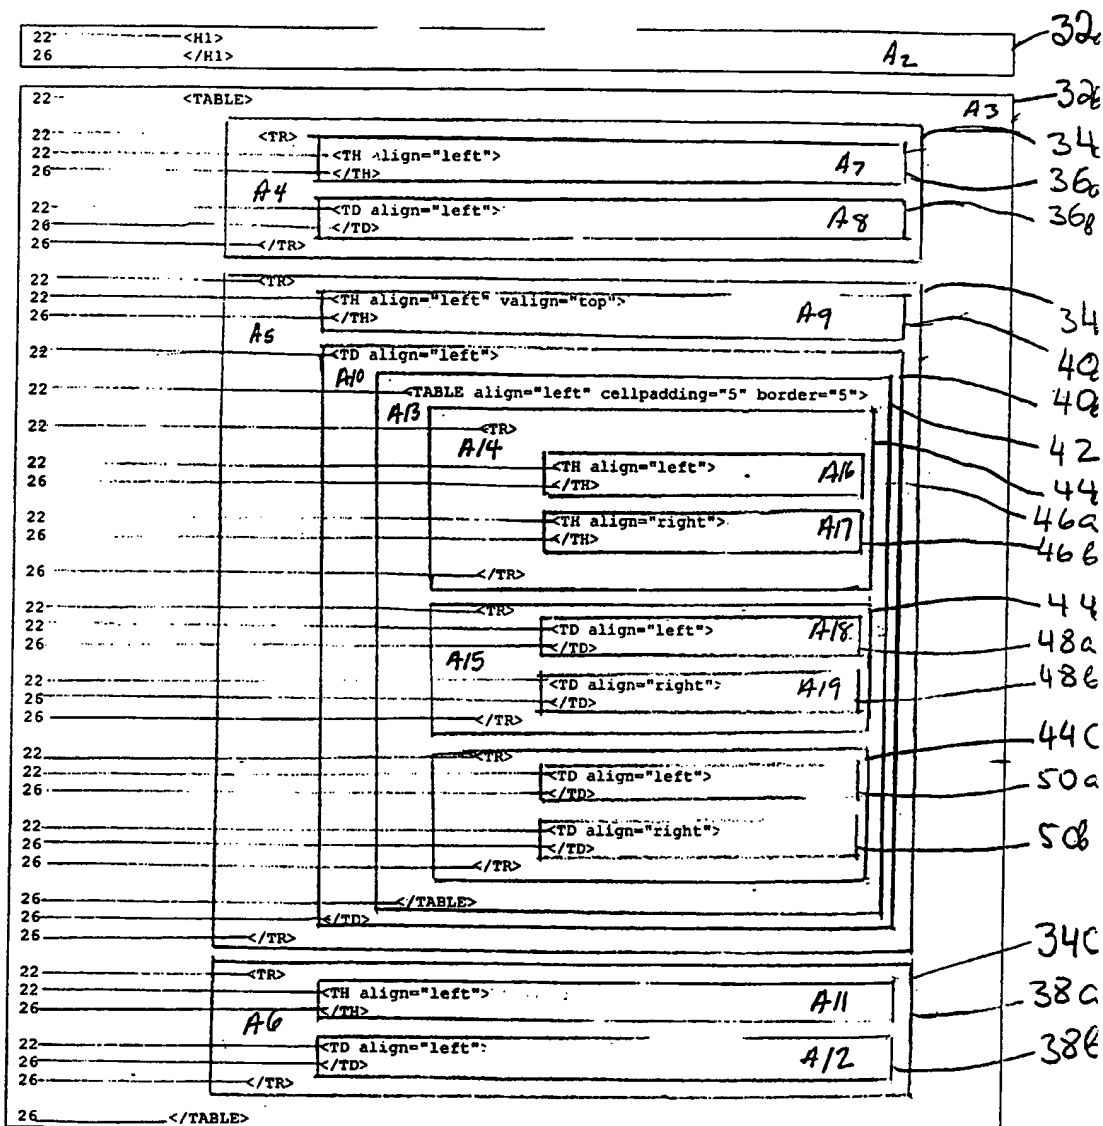 22 <H1> 32a
26 </H1> A2
22 <TABLE> A3 32b
22 <TR> 34
22 <TH align="left"> A7
26 </TH> 36a
A4
22 <TD align="left"> A8 36b
26 </TD>
26 </TR>
22 <TR>
22 <TH align="left" valign="top"> A9 34
26 </TH>
A5
22 <TD align="left"> 40a
A10
22 <TABLE align="left" cellpadding="5" border="5"> 40b
A13
22 <TR> 42
A14
22 <TH align="left"> A16 44
26 </TH>
22 <TH align="right"> A17 46a
26 </TH> 46b
26 </TR>
22 <TR> 44
22 <TD align="left"> A18 48a
26 </TD>
A15
22 <TD align="right"> A19 48b
26 </TD>
26 </TR>
22 <TR> 44C
22 <TD align="left"> 50a
26 </TD>
22 <TD align="right"> 50b
26 </TD>
26 </TR>
26 </TABLE>
26 </TD>
26 </TR> 34C
22 <TR>
22 <TH align="left"> A11 38a
26 </TH>
A6
22 <TD align="left"> A12 38b
26 </TD>
26 </TR>
26 </TABLE>